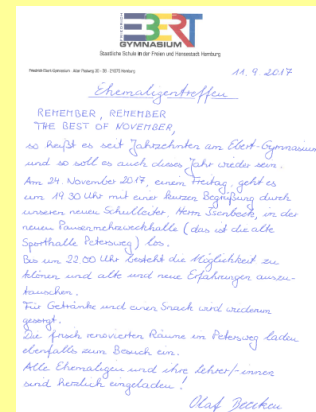 FRIEDRICH
EBERT
GYMNASIUM
Staatliche Schule in der Freien und Hansestadt Hamburg
11.9.2017
Ehemaligentreffen
REMEMBER, REMEMBER
THE BEST OF NOVEMBER,
so heißt es seit Jahrzehnten am Ebert-Gymnasium
und so soll es auch dieses Jahr wieder sein.
Am 24. November 2017, einem Freitag, geht es
um 19 30 Uhr mit einer kurzen Begrüßung durch
unseren neuen Schulleiter, Herrn in der
neuen Pausenmehrzweckhalle (das ist die alte
Sporthalle Petersweg) los.
Bis um 22 00 Uhr besteht die Möglichkeit zu
klönen und alte und neue Erfahrungen auszu-
tauschen.
Für Getränke und einen Snack wird wiederum
gesorgt.
Die frisch renovierten Räume im Petersweg laden
ebenfalls zum Besuch ein.
Alle Ehemaligen und ihre Lehrer/-innen
sind herzlich eingeladen!
Olaf